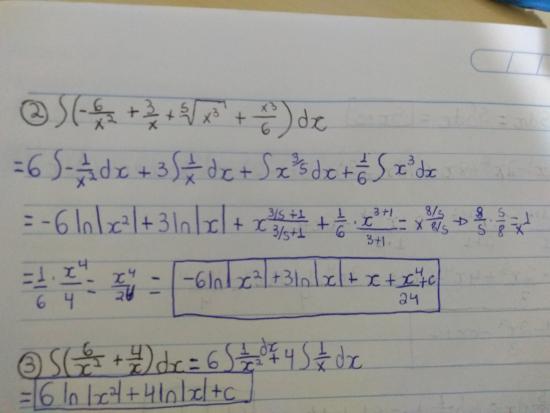 ② ∫(-6/x² + 3/x + ⁵√x³ + x³/6) dx
= 6 ∫ -1/x² dx + 3 ∫ 1/x dx + ∫ x^3/5 dx + 1/6 ∫ x³ dx
= -6 ln|x²| + 3 ln|x| + x^(3/5+1)/(3/5+1) + 1/6 · x^(3+1)/(3+1) = x^(8/5)/(8/5) → 8/5 · 5/8 = 1/x
= 1/6 · x⁴/4 = x⁴/24 = -6 ln|x²| + 3 ln|x| + x + x⁴/24 + c
③ ∫(6/x² + 4/x) dx = 6 ∫ 1/x² dx + 4 ∫ 1/x dx
= 6 ln|x²| + 4 ln|x| + c